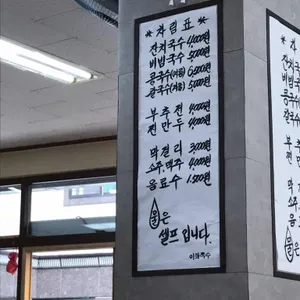 * 차림표 *
잔치국수 4,000원
비빔국수 5,000원
콩국수(여름) 6,000원
칼국수(겨울) 5,000원
부추전 4,000원
찐만두 4,000원
막걸리 3,000원
소주.맥주 4,000원
음료수 1,500원
물은
셀프입니다.
잔치국수
비빔국
콩국수
칼국수